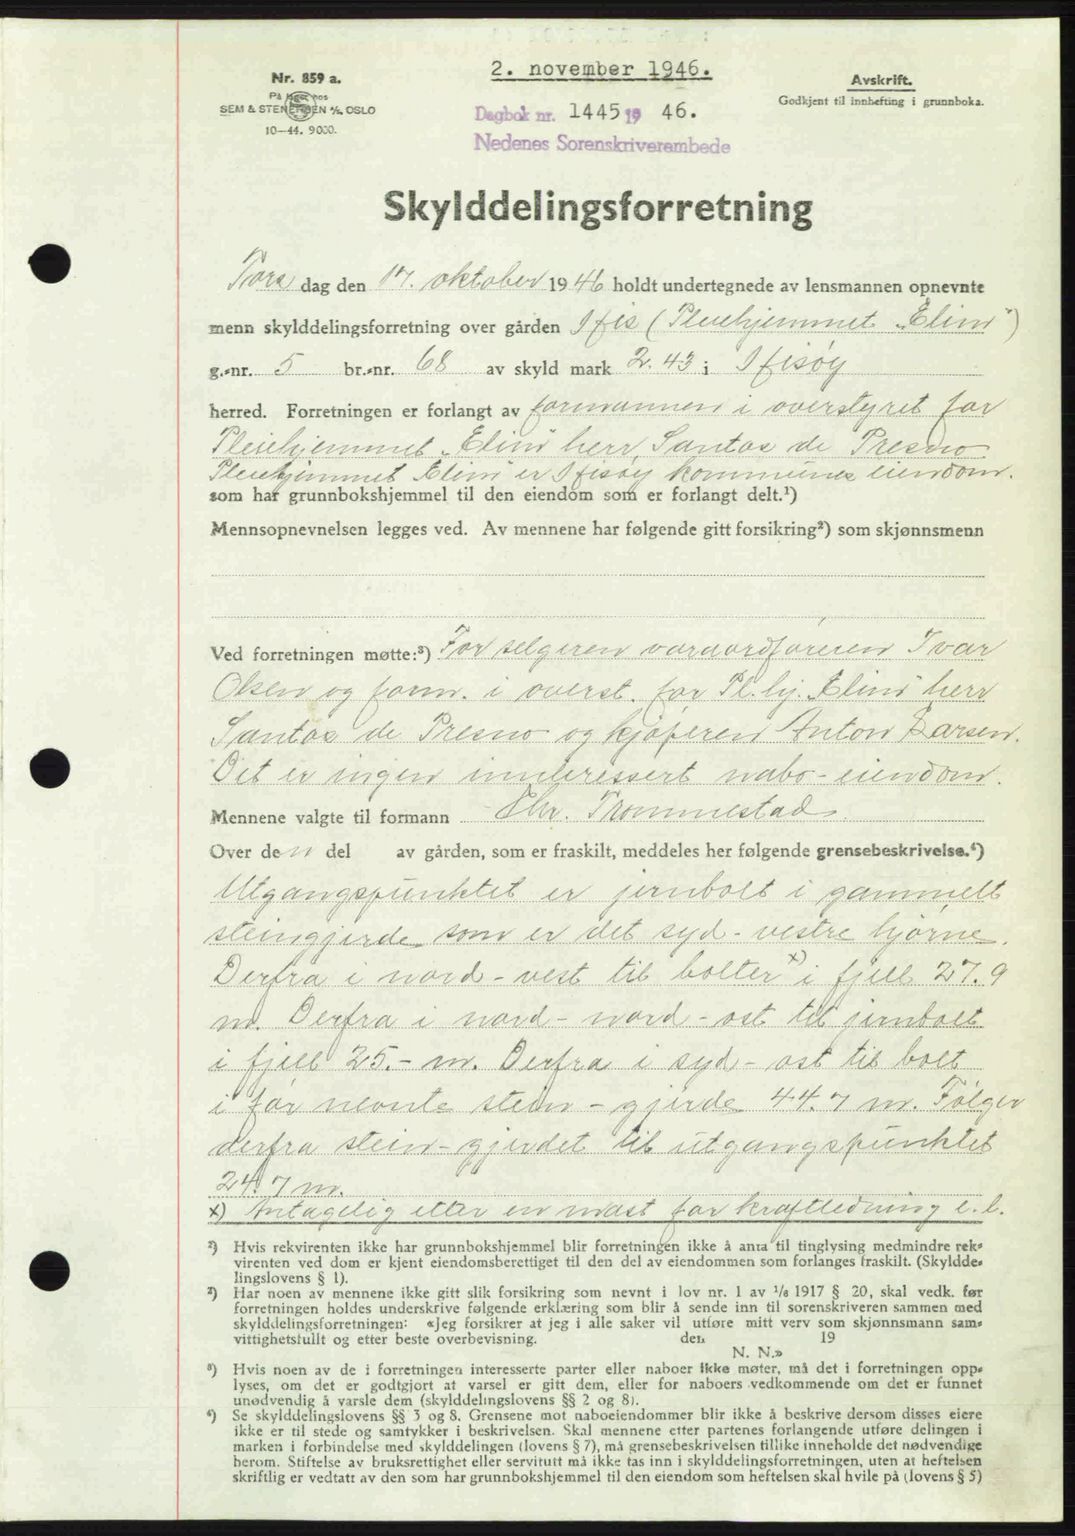 2. november 1946.
Nr. 859 a.
På lager hos
SEM & STENERSEN A/S, OSLO
10—44. 9000.
Avskrift.
Godkjent til innhefting i grunnboka.
Dagbok nr. 1445 19 46.
Nedenes Sorenskriverembede
Skylddelingsforretning
Tors dag den 17. oktober 1946 holdt undertegnede av lensmannen opnevnte
menn skylddelingsforretning over gården (Pleiehjemmet „Elim")
g.-nr. 5 br.-nr. 68 av skyld mark 2.43 i
herred. Forretningen er forlangt av formannen i overstyret for
Pleiehjemmet „Elim" herr Santos de Presno
Pleiehjemmet Elim" er kommunes eiendom.
som har grunnbokshjemmel til den eiendom som er forlangt delt.¹)
Mennsopnevnelsen legges ved. Av mennene har følgende gitt forsikring²) som skjønnsmenn
Ved forretningen møtte:³) For selgeren varaordføreren Ivar
Olsen og form. i overst. for Pl.hj. „Elim" herr
Santos de Presno og kjøperen Anton Larsen.
Det er ingen innteressert nabo-eiendom.
Mennene valgte til formann Chr. Trommestad.
Over den del av gården, som er fraskilt, meddeles her følgende grensebeskrivelse.⁴)
Utgangspunktet er jernbolt i gammelt
steingjerde som er det syd-vestre hjørne.
Derfra i nord-vest til bolter x) i fjell 27.9
m. Derfra i nord-nord-ost til jernbolt
i fjell 25.- m. Derfra i syd-ost til bolt
i før nevnte stein-gjerde 44.7 m. Følger
derfra stein-gjerdet til utgangspunktet
24.7 m.
x) Antagelig etter en mast for kraftledning e.l.
¹) Hvis rekvirenten ikke har grunnbokshjemmel blir forretningen ikke å anta til tinglysing medmindre rek-
virenten ved dom er kjent eiendomsberettiget til den del av eiendommen som forlanges fraskilt. (Skyldde-
lingslovens § 1).
²) Har noen av mennene ikke gitt slik forsikring som nevnt i lov nr. 1 av ¹/₆ 1917 § 20, skal vedk. før
forretningen holdes underskrive følgende erklæring som blir å sende inn til sorenskriveren sammen med
skylddelingsforretningen: «Jeg forsikrer at jeg i alle saker vil utføre mitt verv som skjønnsmann sam-
vittighetsfullt og etter beste overbevisning. den 19
N. N.»
³) Hvis noen av de i forretningen interesserte parter eller naboer ikke møter, må det i forretningen opp-
lyses, om det er godtgjort at varsel er gitt dem, eller for naboers vedkommende om det er funnet
unødvendig å varsle dem (skylddelingslovens §§ 2 og 8).
⁴) Se skylddelingslovens §§ 3 og 8. Grensene mot naboeiendommer blir ikke å beskrive dersom disses eiere
ikke er til stede og samtykker i beskrivelsen. Skal mennene etter partenes forlangende utføre delingen i
marken i forbindelse med skylddelingen (lovens § 7), må grensebeskrivelsen tillike inneholde det nødvendige
herom. Stiftelse av bruksrettighet eller servitutt må ikke tas inn i skylddelingsforretningen, uten at heftelsen
skriftlig er vedtatt av den som har grunnbokshjemmel til den eiendom som heftelsen skal hvile på (lovens § 5)